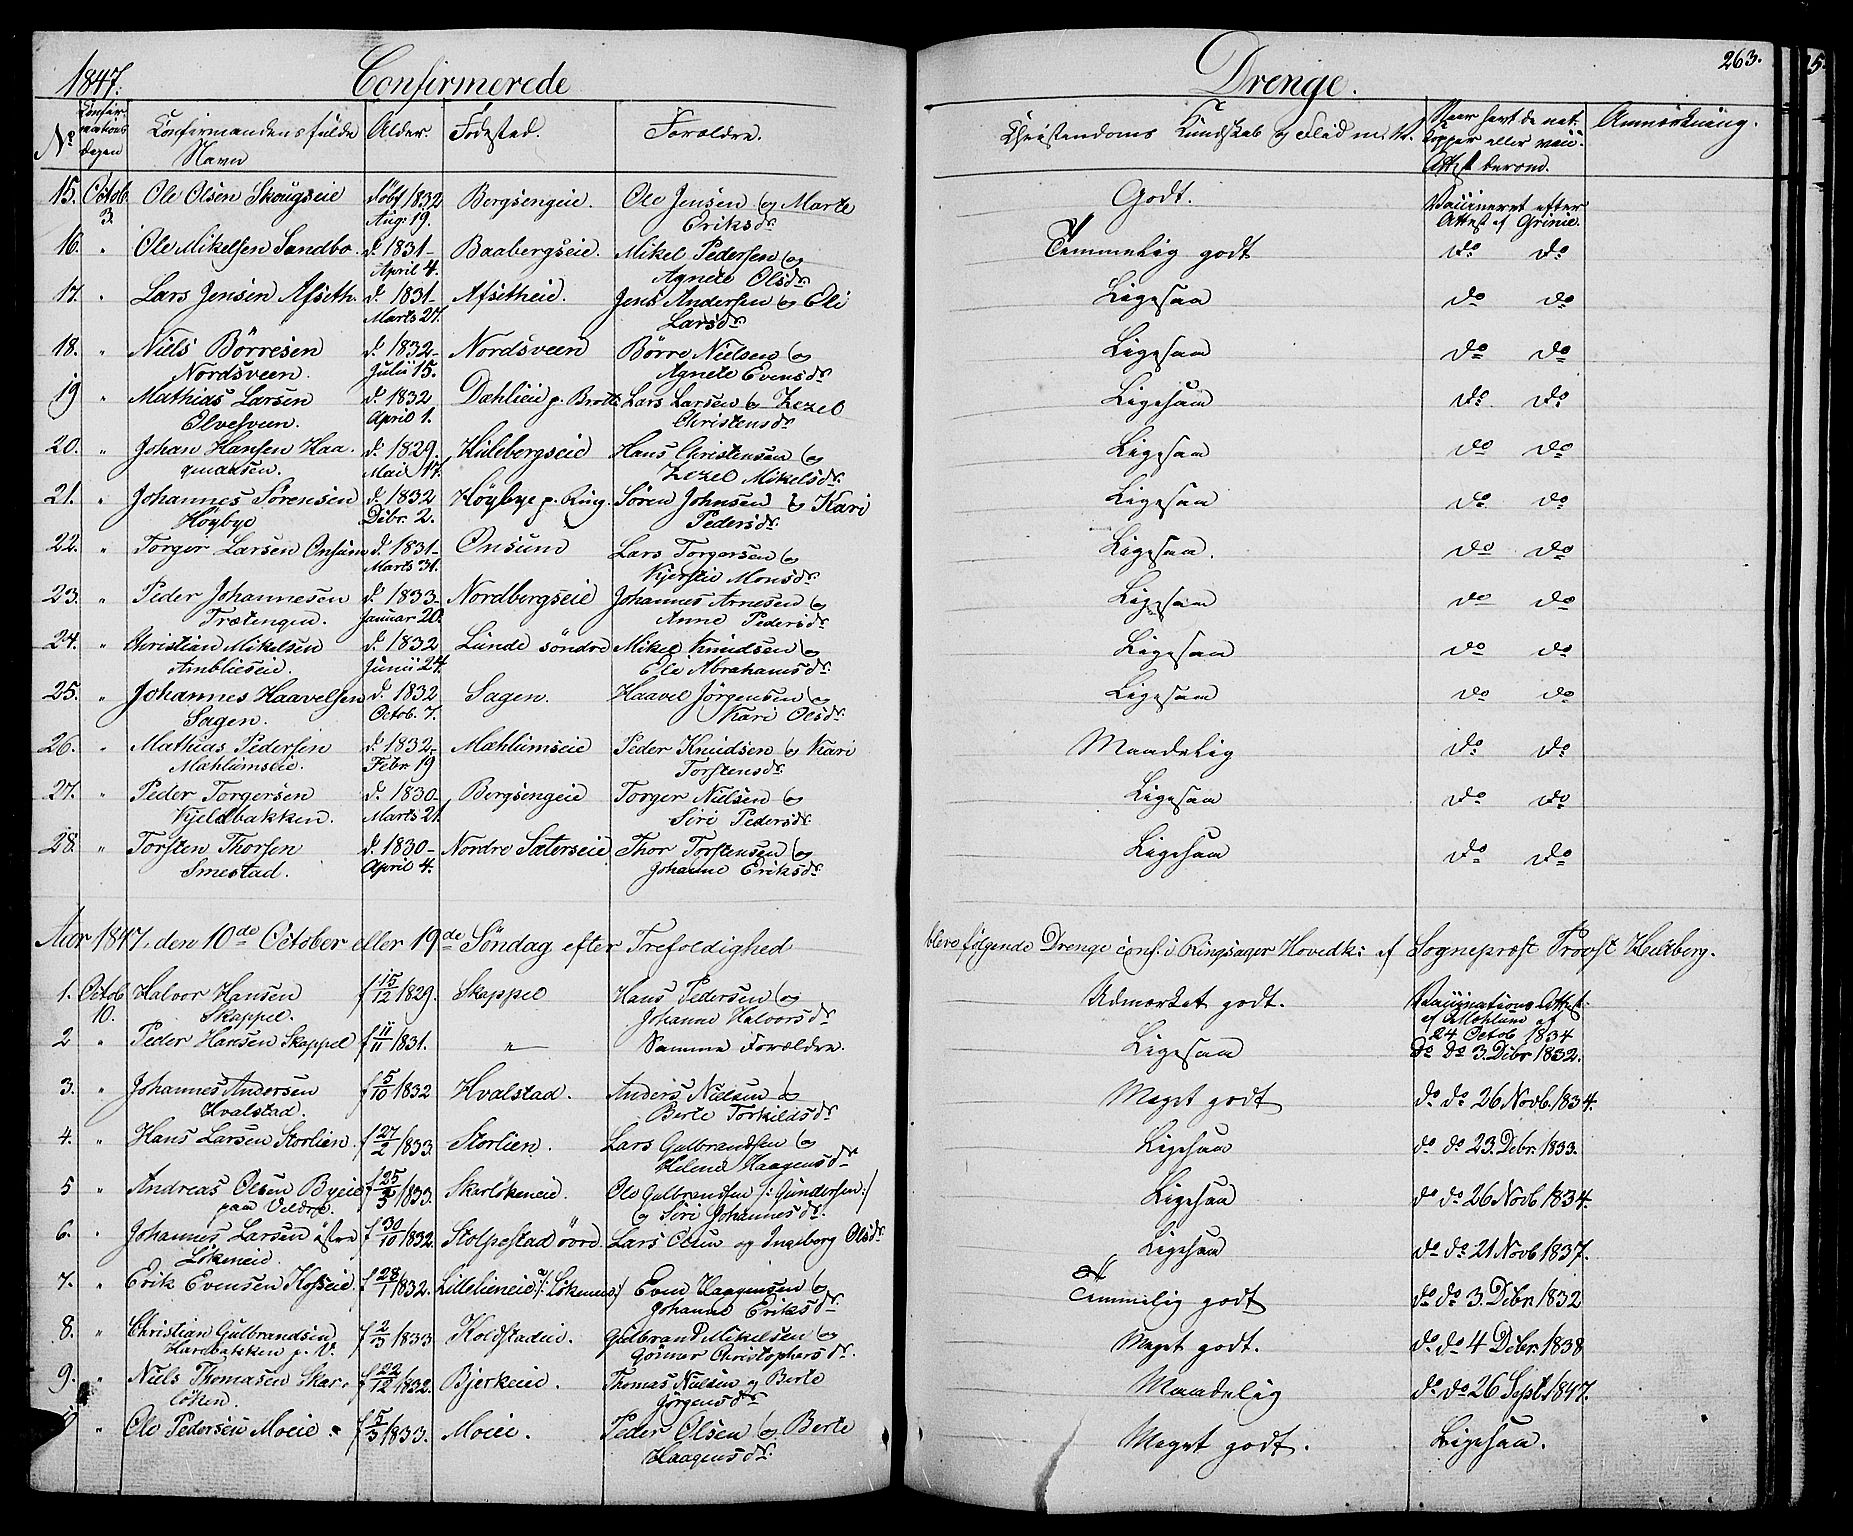 263.
1847. Confirmerede Drenge.
No Confirmations Dagen Confirmandens fulde Navn Alder. Fødested. Forældre. Christendoms Kundskab og Flid m. V. Naar havt de nat. Kopper eller vacc. Attest derom. Anmærkning.
15. Octob. 3. Ole Olsen Skougseie Døbt 1832 Aug. 19. Bergsengeie. Ole Jensen og Marte Eriksdr. Godt. Vaccineret efter Attest af Grinie.
16. " Ole Mikelsen Sandbo. d. 1831 April 4. Baabergseie. Mikel Pedersen og Agnete Olsdr. Temmelig godt do do
17. " Lars Jensen Afseth. d. 1831 Marts 27. Afsetheie. Jens Andersen og Eli Larsdr. Ligesaa do do
18. " Niels Börresen Nordsveen. d. 1832 Julii 15. Nordsveen Börre Nielsen og Agnete Evensdr. Ligesaa do do
19 " Mathias Larsen Elvesveen. d. 1832 April 1. Dahlieie p. Brott. Lars Larsen og Zezel Christensdr. Ligesaa do do
20. " Johan Hansen Haagmansen. d. 1829. Mai 17. Hulebergseie Hans Christensen og Zezel Mikelsdr. Ligesaa do do
21. " Johannes Sörensen Höybye d. 1832 Debr. 2. Höybye p. Ring. Sören Johnsen og Kari Pedersdr. Ligesaa do do
22. " Torger Larsen Onsum d. 1831 Marts 31. Onsum Lars Torgersen og Kjerstie Monsdr. Ligesaa. do do
23. " Peder Johannesen Trætengen. d. 1833 Januar 20. Nordbergseie Johannes Arnesen og Anne Pedersdr. Ligesaa do do
24. " Christian Mikelsen Amblieseie. d. 1832 Junii 24. Lunde söndre Mikel Knudsen og Eli Abrahamsdr. Ligesaa do do
25. " Johannes Haavelsen Sagen. d. 1832 Octob. 7. Sagen. Haavel Jörgensen og Kari Olsdr. Ligesaa do do
26. " Mathias Pedersen Mæhlumseie. d. 1832 Febr. 19 Mæhlumseie Peder Knudsen og Kari Torstensdr. Maadelig do do
27. " Peder Torgersen Kjeldbakken. d. 1830 Marts 21. Bergsengeie Torger Nielsen og Siri Pedersdr. Ligesaa do do
28. " Torsten Thorsen Smestad. d. 1830 April 4. Nordre Sæterseie Thor Torstensen og Johanne Eriksdr. Ligesaa do do
Aar 1847, den 10de October eller 19de Söndag efter Trefoldighed bleve følgende Drenge conf. i Ringsager Hovedk: af Sognepræst Provst Heltberg.
1. Octob 10. Halvor Hansen Skappel. f 15/12 1829. Skappel Hans Pedersen og Johanne Halvorsdr. Udmærket godt. Vaccinations Attest af Mæhlum af 24 Octob 1834
2 " Peder Hansen Skappel f 11/11 1831. " Samme Forældre. Ligesaa do do 3. Debr 1832.
3. " Johannes Andersen Hvalstad. f 5/10 1832 Hvalstad. Anders Nielsen og Berte Torkildsdr. Meget godt do do 26 Novb. 1834.
4. " Hans Larsen Storlien. f 27/2 1833. Storlien. Lars Gulbrandsen og Helene Haagensdr. Ligesaa do do 23. Debr. 1833.
5 " Andreas Olsen Byeie paa Veldre. f 25/3 1833. Skarlökeneie. Ole Gulbrandsen /: Gundersen :/ og Siri Johannesdr. Ligesaa do do 26 Novb 1834.
6. " Johannes Larsen østre Lökeneie. f 30/10 1832. Stolpestad övre. Lars Olsen og Ingeberg Olsdr. Ligesaa do do 21 Novb 1837.
7. " Erik Evensen Kofseie. f 28/1 1832. Lillelieneie /: Lökenes :/ Even Haagensen og Johanne Eriksdr. Temmelig godt do do 3. Debr 1832
8. " Christian Gulbrandsen Hardbakken p. V. f 2/3 1833 Koldstadeie. Gulbrand Mikelsen og Gönner Christophersdr. Meget godt. do do 4 Debr. 1838
9. " Niels Thomasen Skarlöken. f 22/12 1832. Bjerkeeie. Thomas Nielsen og Berte Jörgensdr. Maadelig do do 26 Sept. 1847.
" Ole Pedersen Moeie. f 5/3 1833. Moeie. Peder Olsen og Berte Haagensdr. Meget godt. Ligesaa.